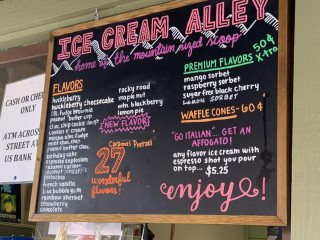 ICE CREAM ALLEY
home of the mountain sized scoop
FLAVORS
huckleberry
huckleberry cheesecake
peanut butter cup
cookies n' cream
mint choc chip
peanut butter choc
birthday cake
espresso explosion
caramel caramel
pistachio
French vanilla
live bubble gum
rainbow sherbet
strawberry
chocolate
rocky road
maple nut
mtn blackberry
lemon pie
NEW FLAVORS
Caramel Pretzel
27
wonderful
flavors!
PREMIUM FLAVORS 50¢ X-tra
mango sorbet
raspberry sorbet
sugar free black cherry
LEMON SORBET
WAFFLE CONES - 60¢
"GO ITALIAN"... GET AN
AFFOGATO!
any flavor ice cream with
espresso shot you pour
on top... $5.25
enjoy!
CASH OR CHECK
ONLY
ATM ACROSS
STREET AT
US BANK